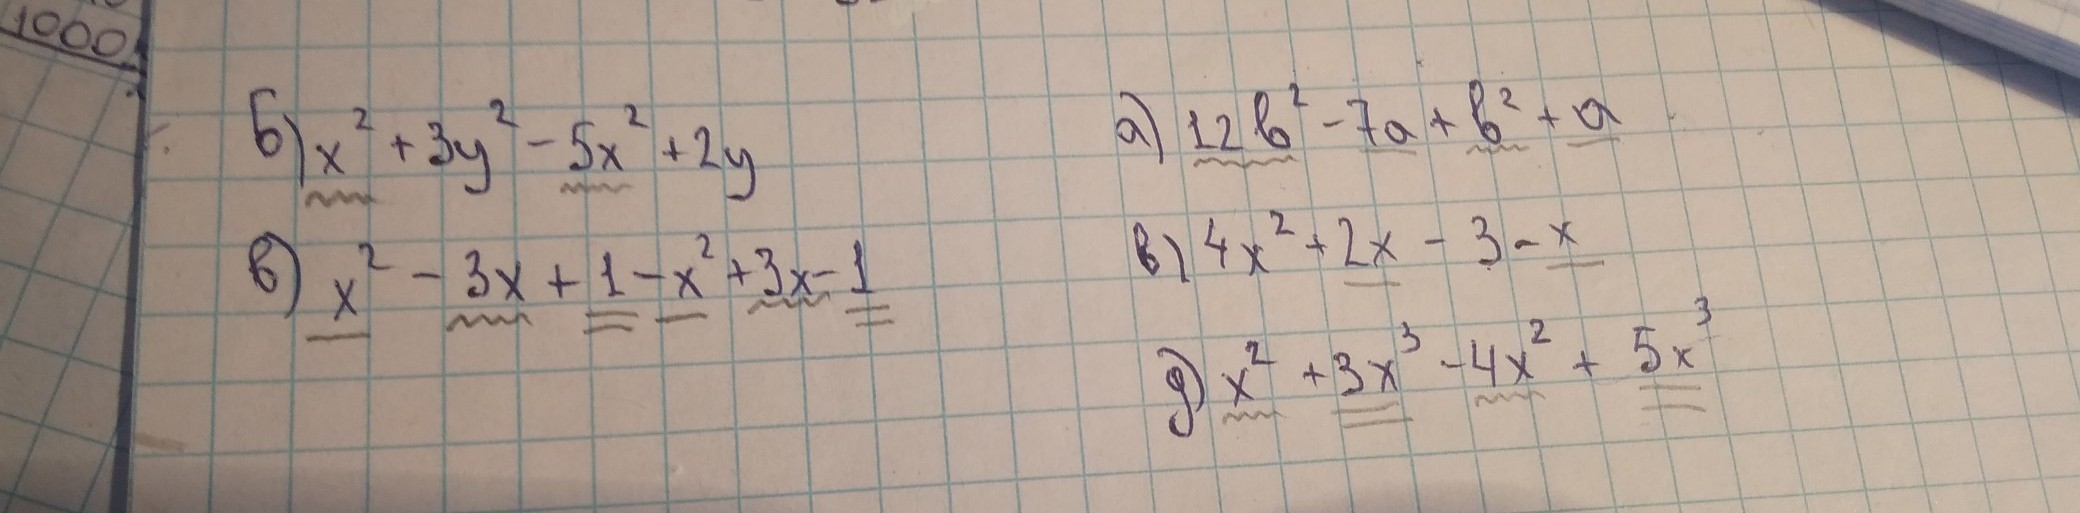 1000
б) x² + 3y² - 5x² + 2y
в) x² - 3x + 1 - x² + 3x - 1
а) 12b² - 7a + b² + a
в) 4x² + 2x - 3 - x
д) x² + 3x³ - 4x² + 5x³